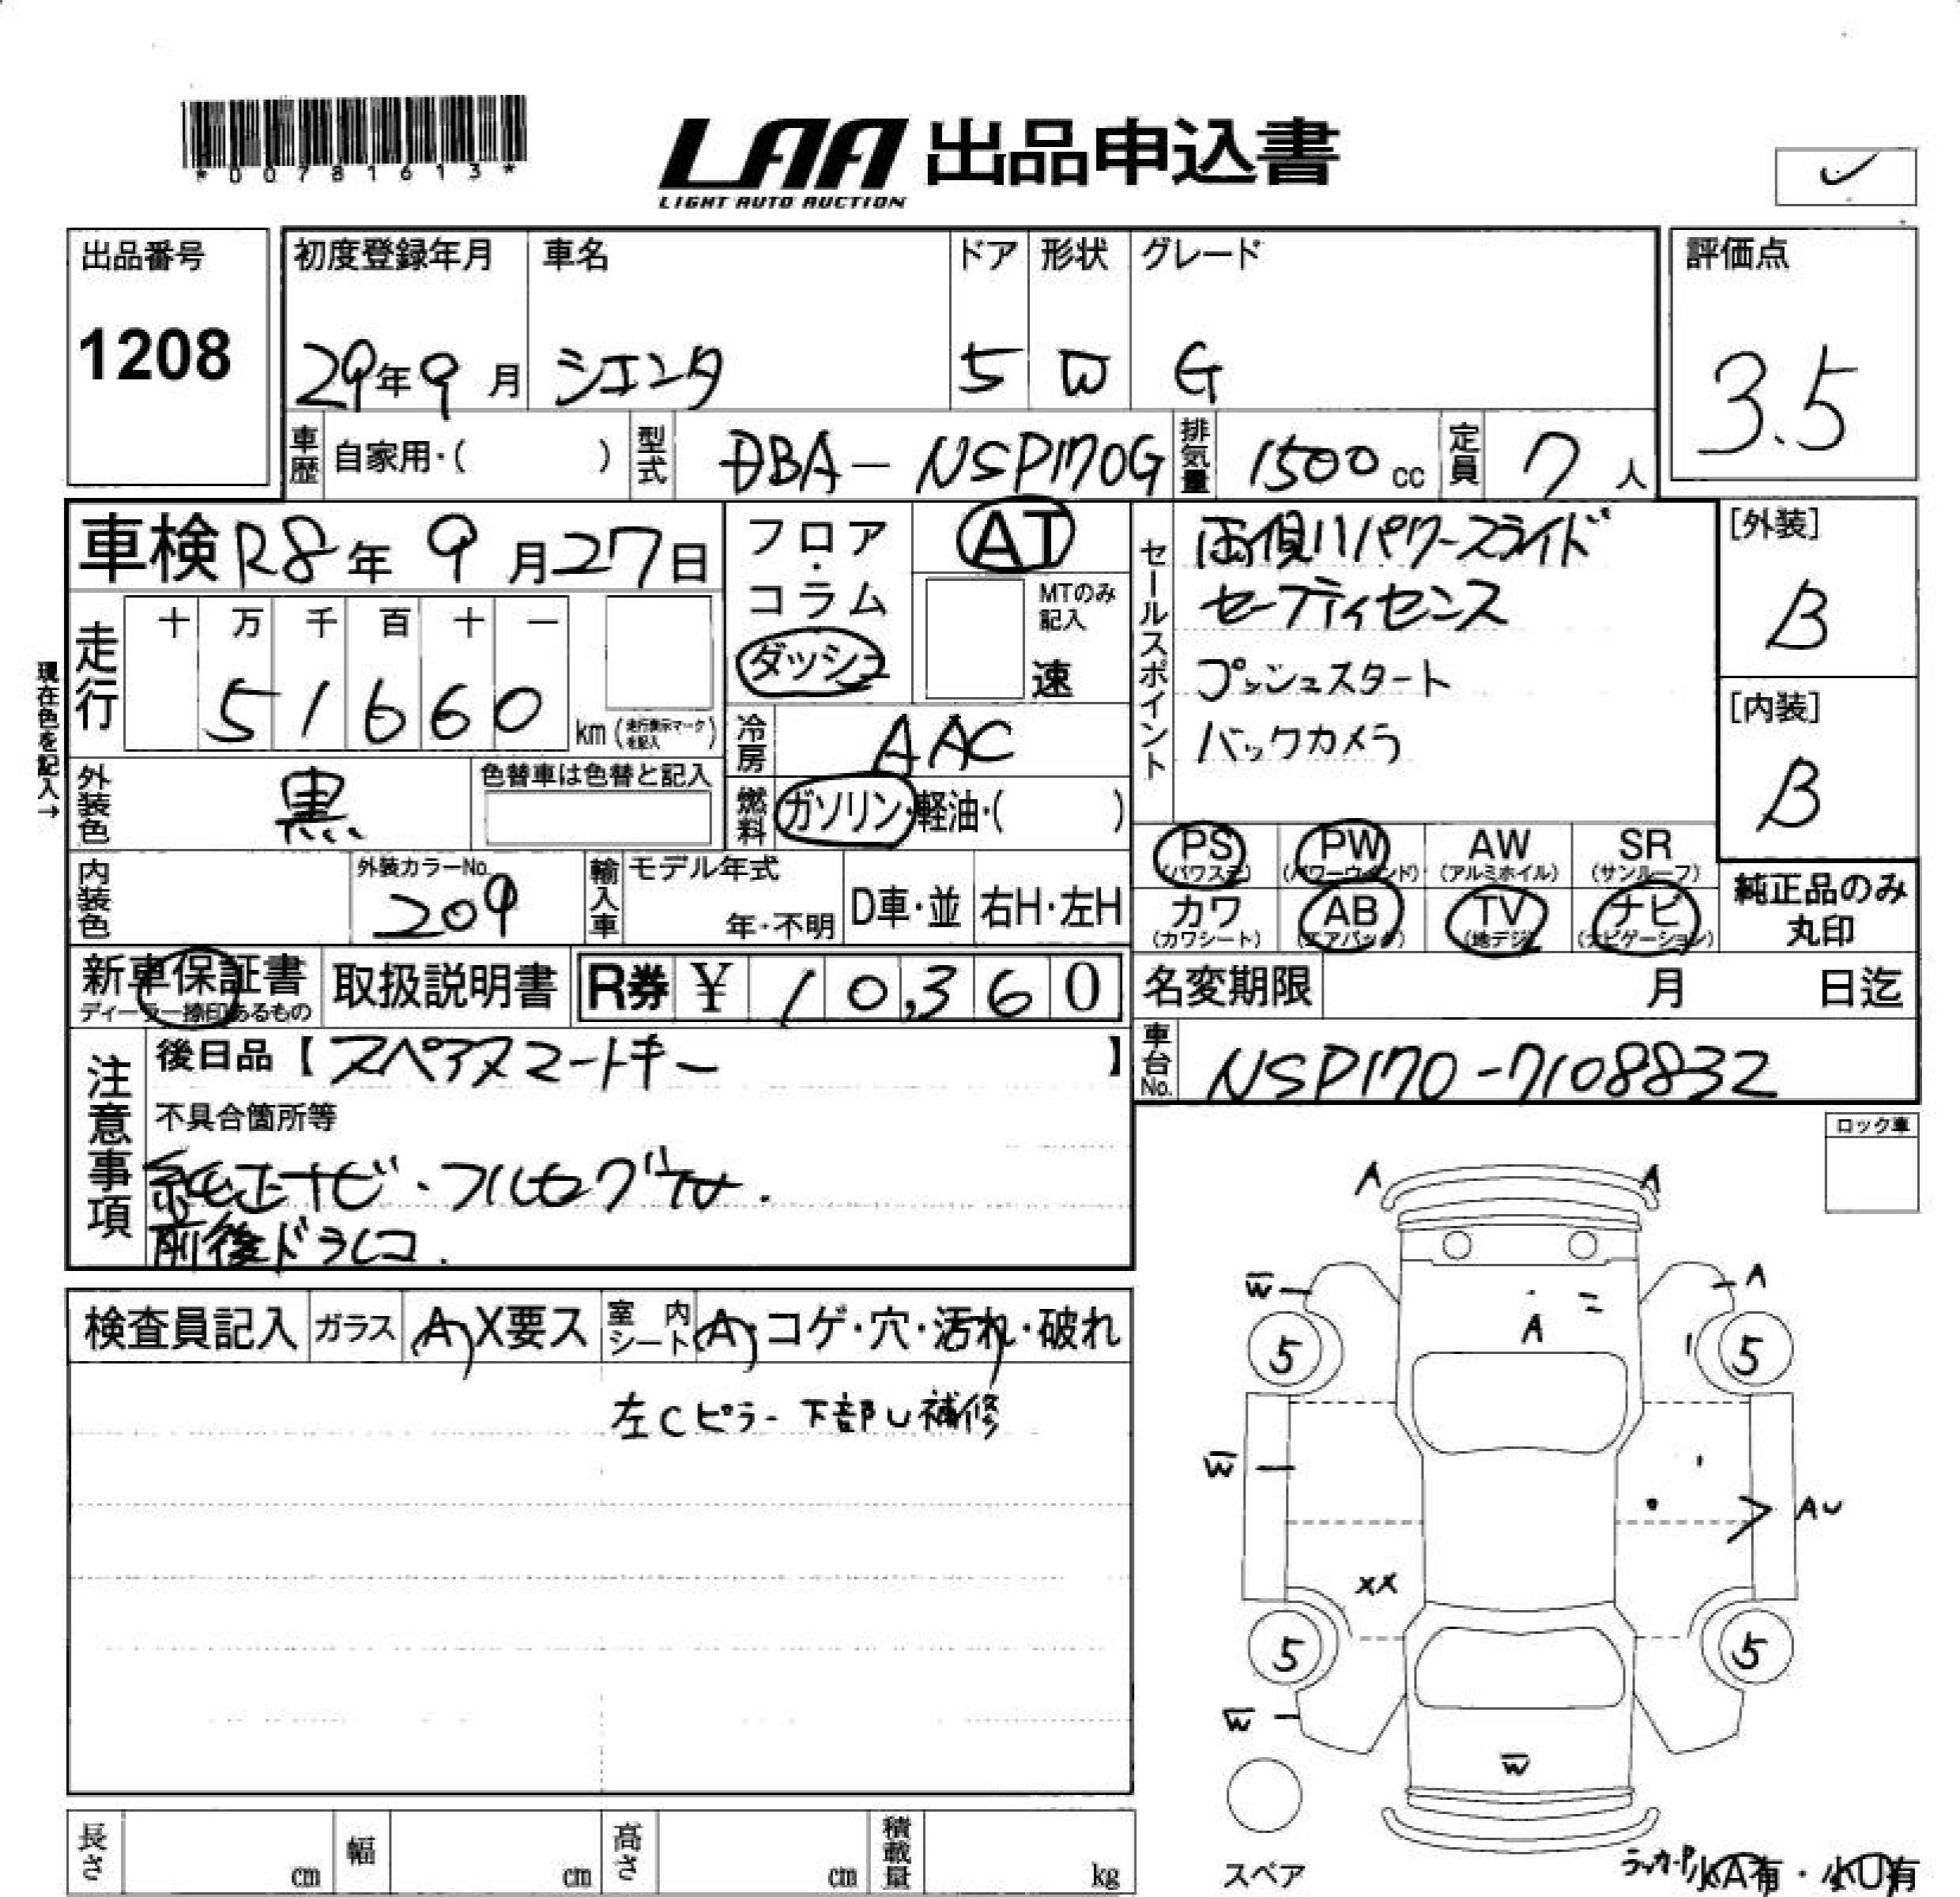 *00781613*
LAA 出品申込書
LIGHT AUTO AUCTION
出品番号
1208
初度登録年月
29年9月
車名
シエンタ
ドア
5
形状
W
グレード
G
評価点
3.5
車歴 自家用・( )
型式 DBA-NSP170G
排気量 1500cc
定員 7人
車検 R8年9月27日
走行 十 万 千 百 十 一
51660 km (走行表示マークを記入)
現在色を記入→
外装色 黒
色替車は色替と記入
内装色
外装カラーNo. 209
フロア・コラム
ダッシュ
AT
MTのみ記入
速
冷房 AAC
燃料 ガソリン・軽油・( )
輸入車 モデル年式
年・不明 D車・並 右H・左H
セールスポイント
両側パワースライド
セーフティセンス
プッシュスタート
バックカメラ
[外装]
B
[内装]
B
PS PW AW SR
(パワステ) (パワーウィンド) (アルミホイル) (サンルーフ)
カワ AB TV ナビ
(カワシート) (エアバッグ) (地デジ) (ナビゲーション)
純正品のみ
丸印
新車保証書
ディーラー捺印あるもの
取扱説明書
R券 ¥10,360
名変期限 月 日迄
車台No. NSP170-7108832
注意事項
後日品【スペアスマートキー】
不具合箇所等
純正ナビ・フルセグTV.
前後ドラレコ.
ロック車
検査員記入 ガラス A X要ス 室内シート A・コゲ・穴・汚れ・破れ
左Cピラー下部U補修
A A
W A
A
5 5
W
AU
XX
5 5
W
W
スペア
小A有・小U有
長さ cm 幅 cm 高さ cm 積載量 kg